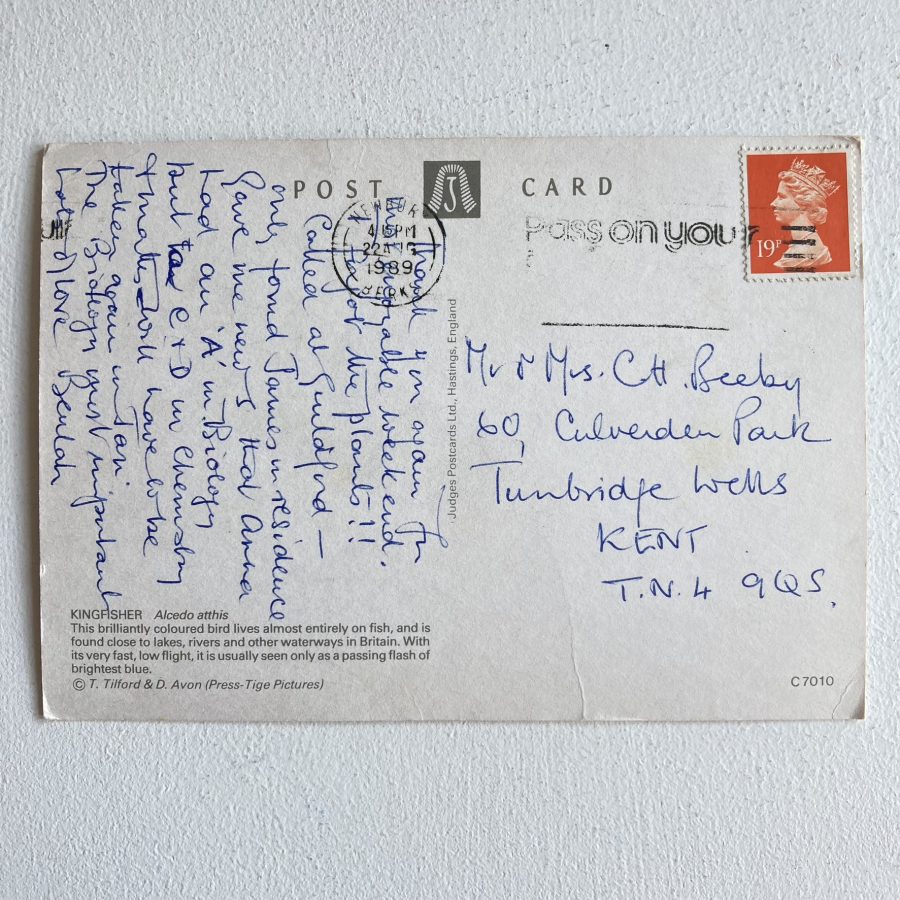 POST CARD
J
NEWBURY
4 15PM
22 AUG
1989
BERKS
Pass on your
19P
Thank you again for
enjoyable weekend.
for the plants!!
Called at Guildford —
only found James in residence
Gave me news that Anna
had an 'A' in Biology
but C & D in Chemistry
& Maths will have to be
taken again in Jan.
The Biology most important
Lots of love Beulah
Judges Postcards Ltd., Hastings, England
Mr & Mrs. C.H. Beeby
60, Culverden Park
Tunbridge Wells
KENT
T.N.4 9QS.
KINGFISHER Alcedo atthis
This brilliantly coloured bird lives almost entirely on fish, and is
found close to lakes, rivers and other waterways in Britain. With
its very fast, low flight, it is usually seen only as a passing flash of
brightest blue.
© T. Tilford & D. Avon (Press-Tige Pictures)
C7010